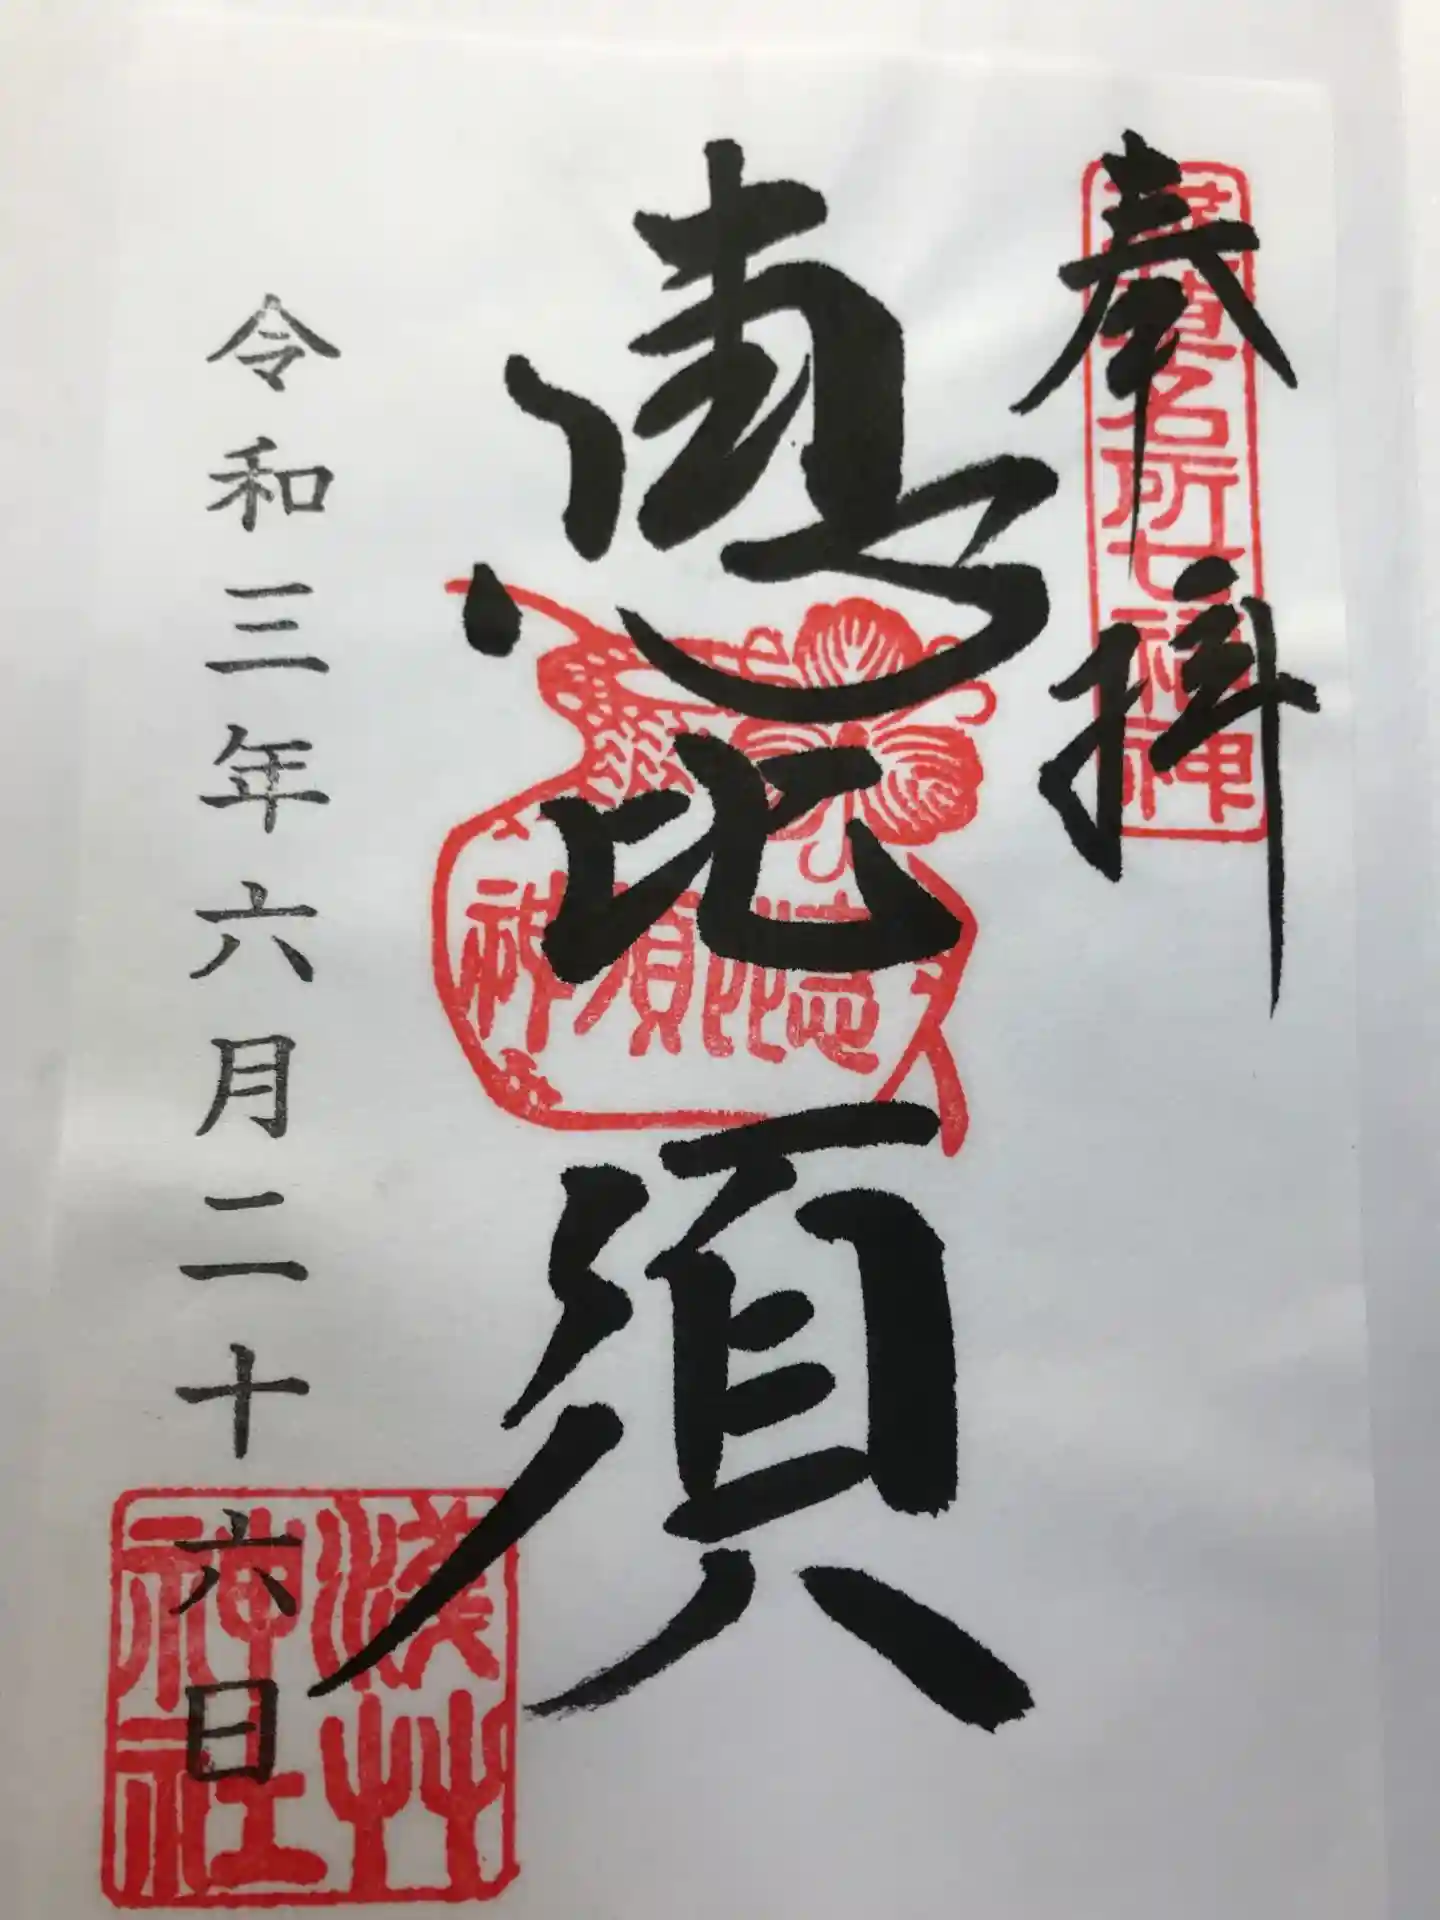 奉拝
浅草名所七福神
恵比須
恵比須神
令和三年六月二十六日
浅草神社